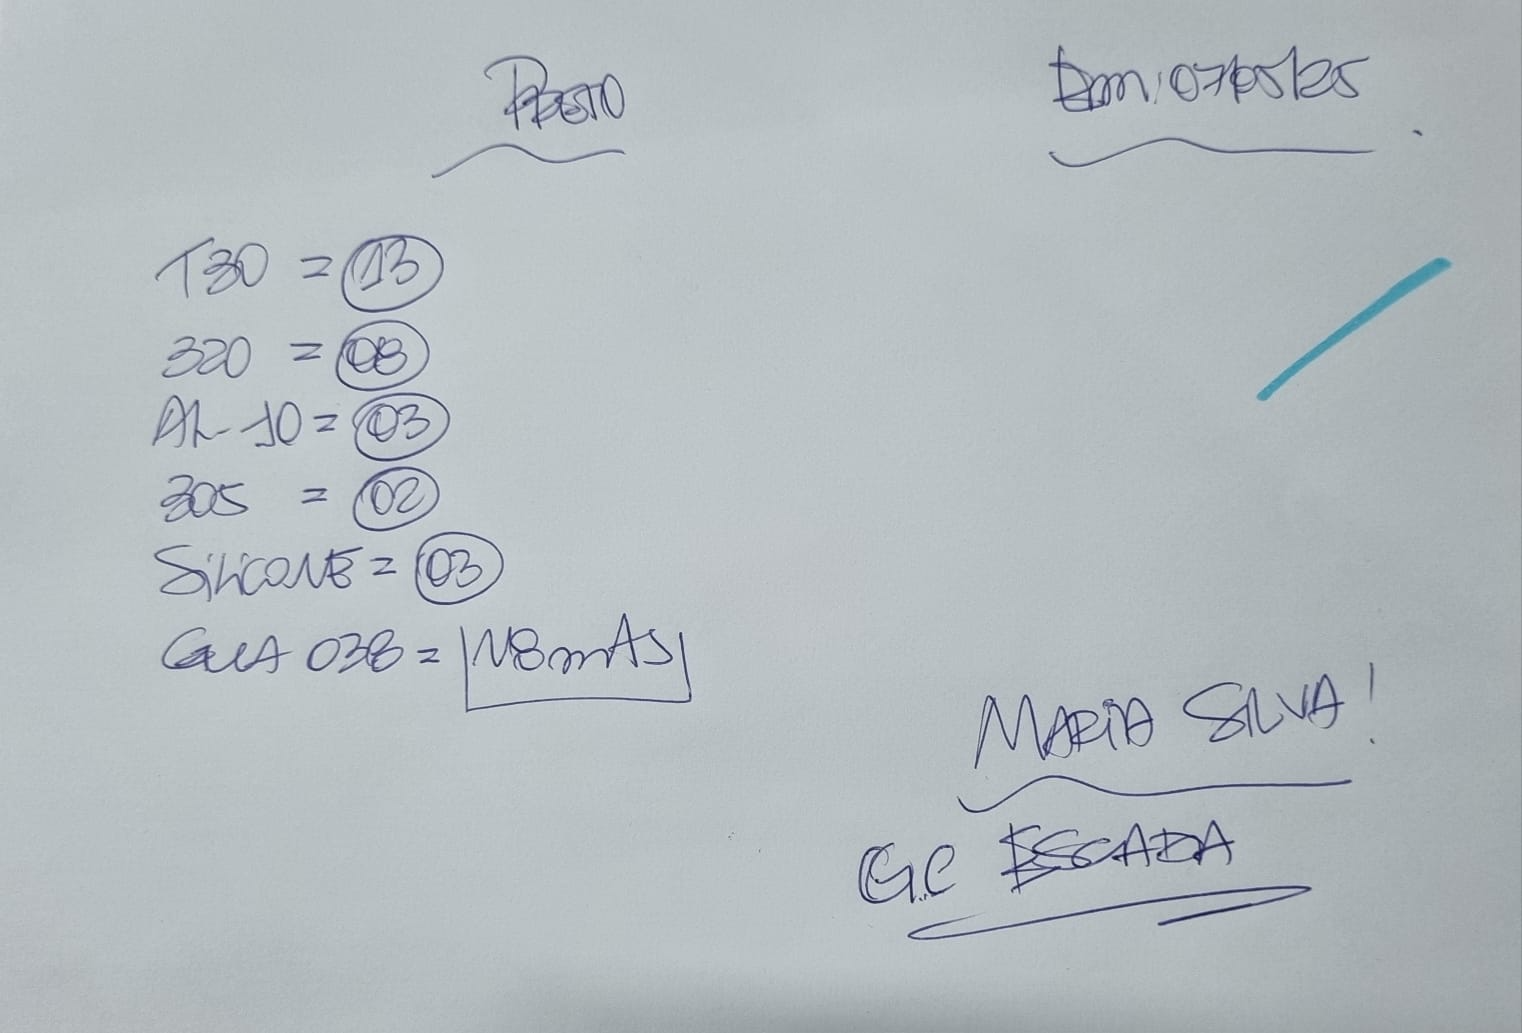 PRETO
Em: 07/05/25
T30 = 13
320 = 08
AL-10 = 03
305 = 02
SiLiCONE = 03
038 =
MARiA SILVA!
G.C ESCADA